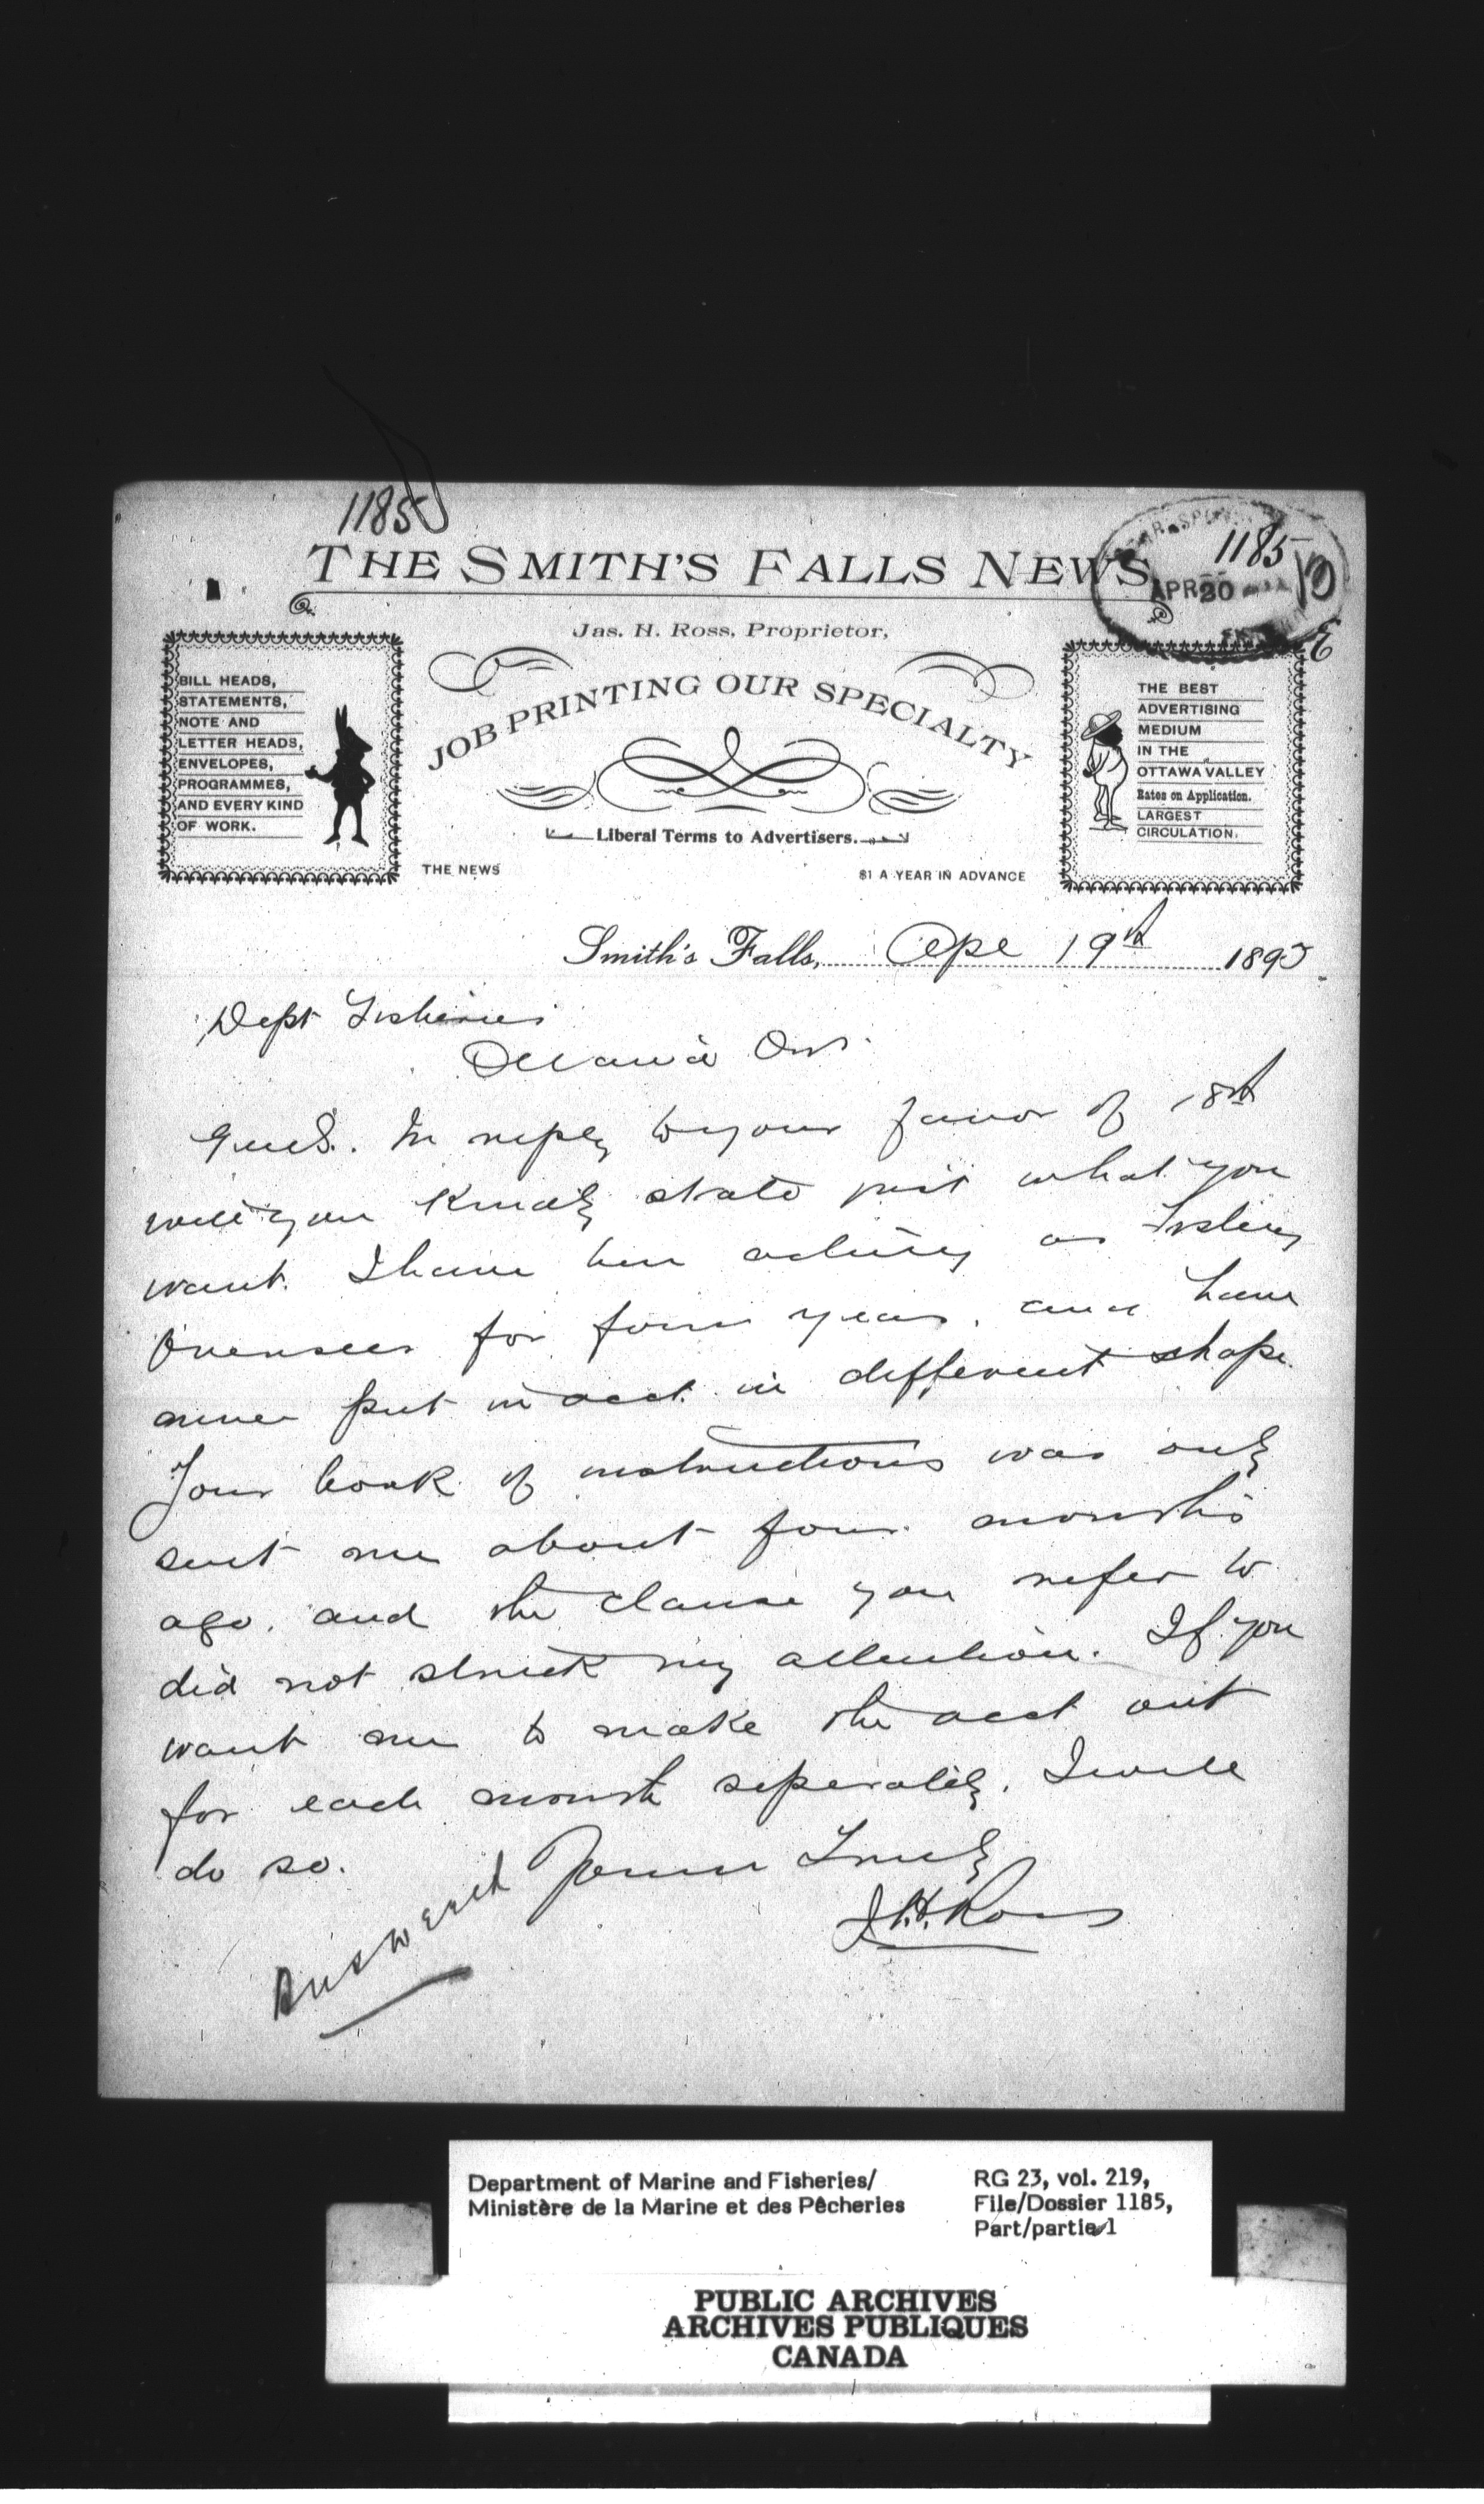 1185
THE SMITH'S FALLS NEWS
1185
APR 20
E
Jas. H. Ross, Proprietor,
BILL HEADS,
STATEMENTS,
NOTE AND
LETTER HEADS,
ENVELOPES,
PROGRAMMES,
AND EVERY KIND
OF WORK.
JOB PRINTING OUR SPECIALTY
Liberal Terms to Advertisers.
THE NEWS
$1 A YEAR IN ADVANCE
THE BEST
ADVERTISING
MEDIUM
IN THE
OTTAWA VALLEY
Rates on Application.
LARGEST
CIRCULATION.
Smith's Falls, Apl 19th 1893
Dept Fisheries
Ottawa Ont.
Gents. In reply to your favor of 18th
will you Kindly state just what you
want. I have been acting as Fishery
Overseer for four years, and have
never put in acct. in different shape.
Your book of instructions was only
sent me about four months
ago, and the clause you refer to
did not struck my attention. If you
want me to make the acct out
for each month seperately, I will
do so.
Yours Truly
J.H. Ross
Answered
Department of Marine and Fisheries/
Ministère de la Marine et des Pêcheries
RG 23, vol. 219,
File/Dossier 1185,
Part/partie 1
PUBLIC ARCHIVES
ARCHIVES PUBLIQUES
CANADA